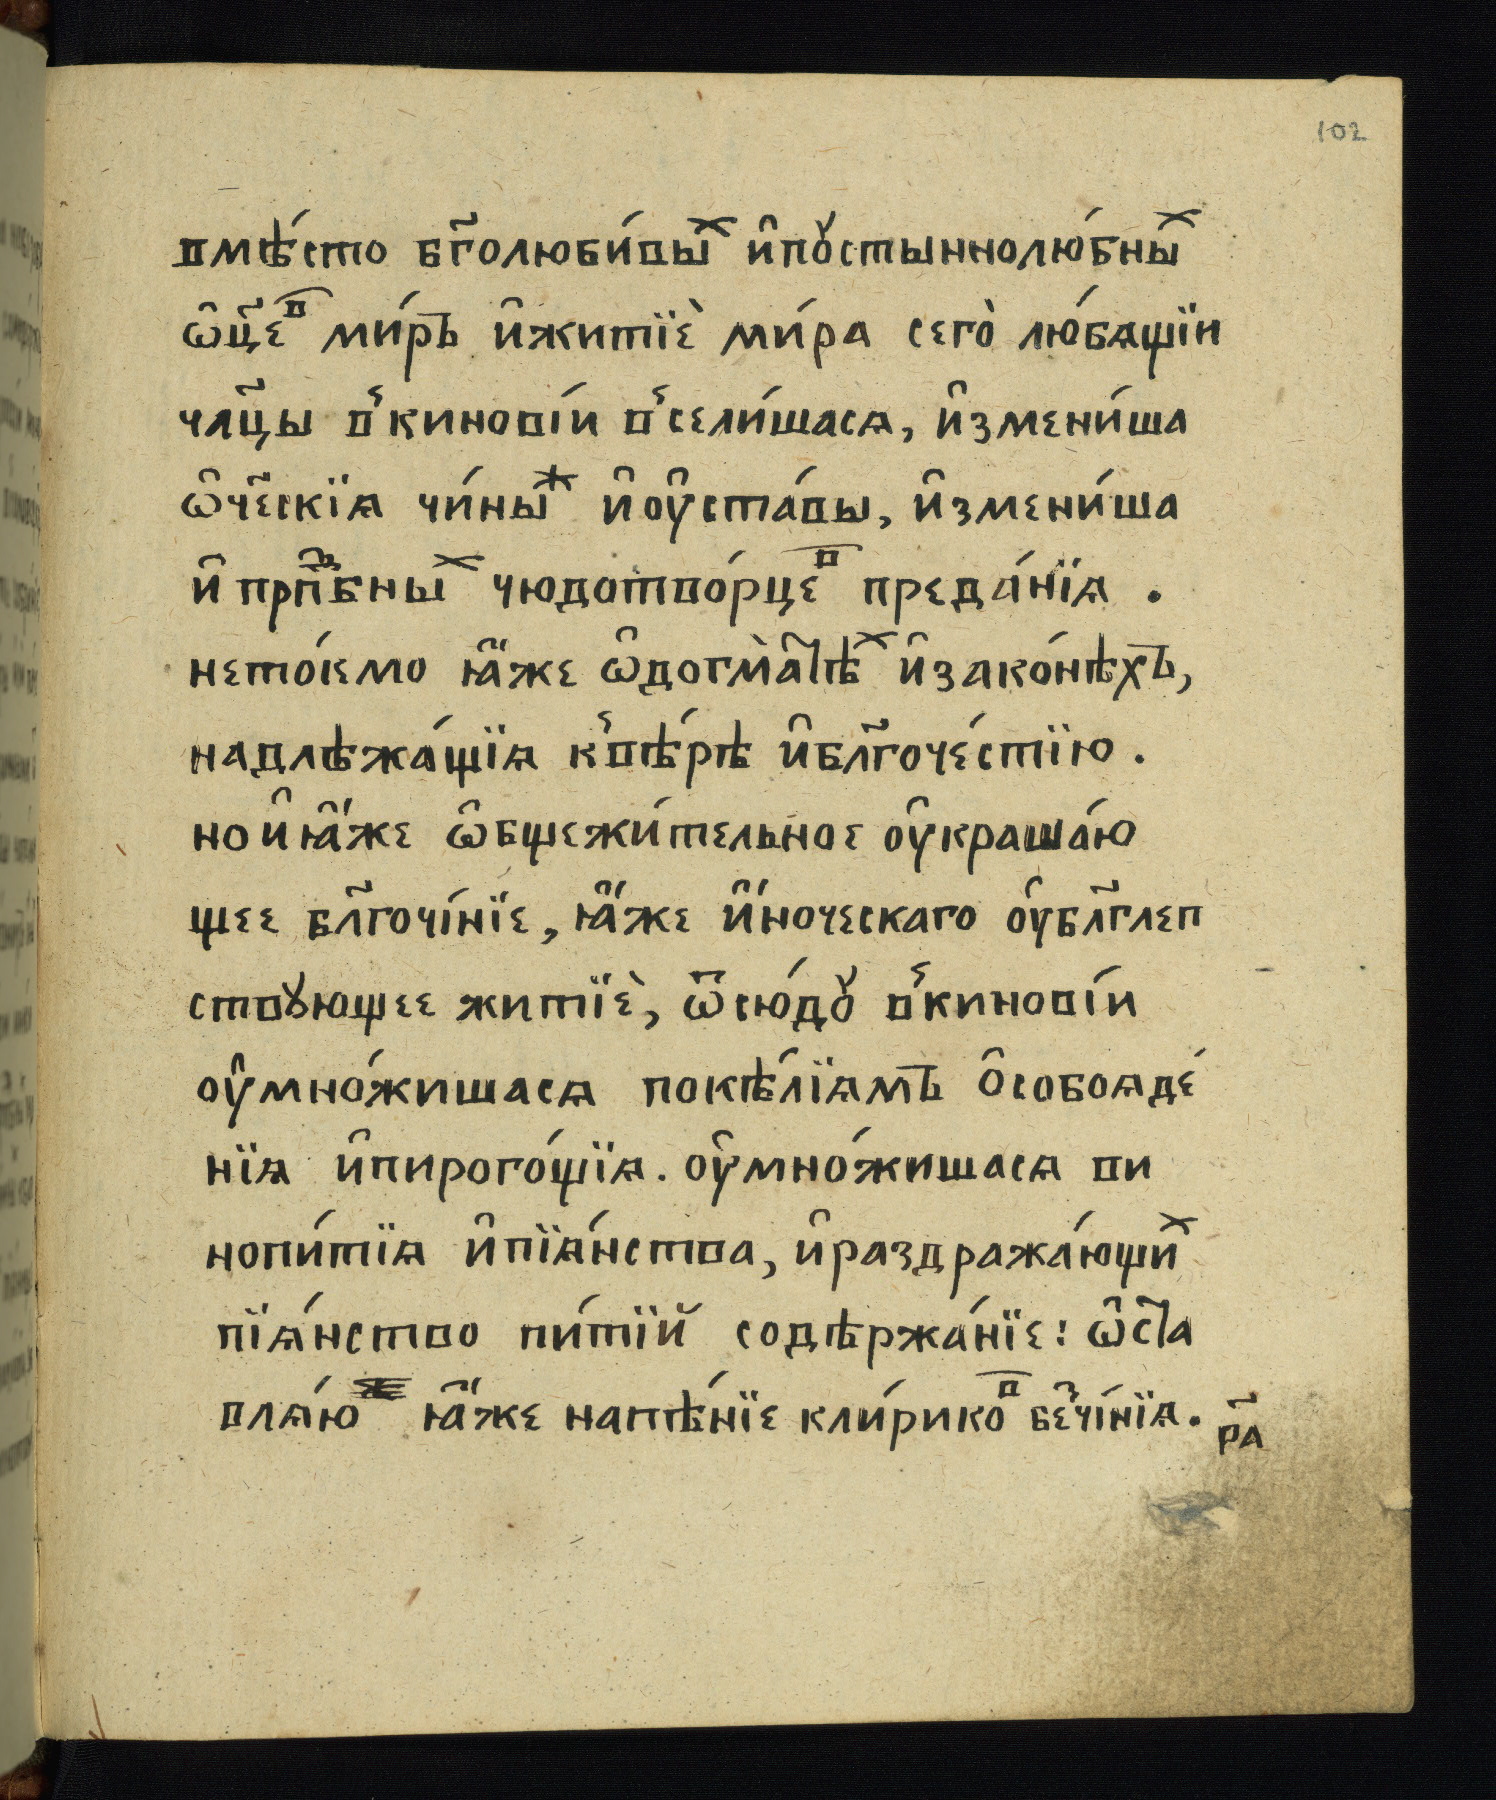 102
вмѣ́сто бг҃олюби́выⷯ и҆пꙋстыннолю́бныⷯ
ѡ҆ц҃еⷡ҇ ми́ръ и҆житїѐ ми́ра сегѡ̀ лю́бѧщїи
чл҃цы в̾кинові́и в̾сели́шасѧ, и҆змени́ша
ѡ҆ч҃ескїѧ чи́ныⷤ и҆оу҆ста́вы, и҆змени́ша
и҆ прпⷣбныⷯ чюдотво́рцеⷡ҇ преда́нїѧ .
нето́кмо ꙗ҆́же ѡ҆догма̀тѣⷯ и҆зако́нѣхъ,
надлѣжа́щїѧ к̾вѣ́рѣ и҆бл҃гоче́стїю .
но и҆ ꙗ҆́же ѡ҆бщежи́тельное оу҆краша́ю
щее бл҃гочі́нїе, ꙗ҆́же и҆́ноческаго оу҆бл҃глеп
ствꙋющее житїѐ, ѿсю́дꙋ в̾кинові́и
оу҆мно́жишасѧ покѣ́лїѧмъ о҆собоѧде́
нїѧ и҆пирого́щїѧ. оу҆мно́жишасѧ ви
нопи́тїѧ и҆пїѧ́нства, и҆раздража́ющиⷯ
пїѧ́нство пи́тїй содѣржа́нїе: ѡ҆ста
влѧ́ю ꙗ҆́же напѣ́нїе кли́рикоⷡ҇ беⷥчі́нїѧ.
р҃а